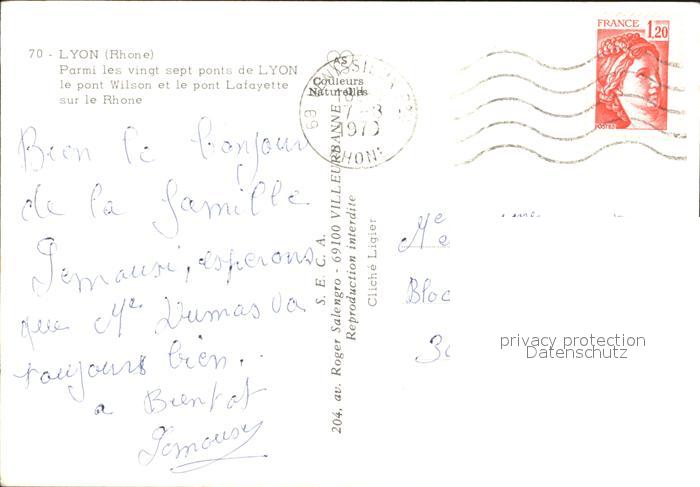 70 - LYON (Rhone)
Parmi les vingt sept ponts de LYON
le pont Wilson et le pont Lafayette
sur le Rhone
AS
Couleurs
Naturelles
69
1979
RHONE
FRANCE
1,20
POSTES
Bien le bonjour
de la famille
esperons
que Me Dumas va
toujours bien.
a Bientot
S. E. C. A.
204, av. Roger Salengro - 69100 VILLEURBANNE
Reproduction interdite
Cliché Ligier
Me
Bloc
privacy protection
Datenschutz